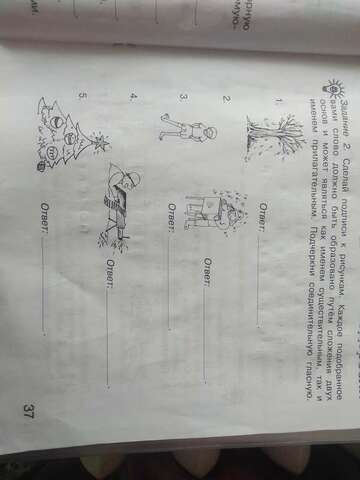 Задание 2. Сделай подписи к рисункам. Каждое подобранное
вами слово должно быть образовано путём сложения двух
основ и может являться как именем существительным, так и
именем прилагательным. Подчеркни соединительную гласную.
1.
Ответ:
2.
Ответ:
3.
Ответ:
4.
Ответ:
5.
Ответ:
37